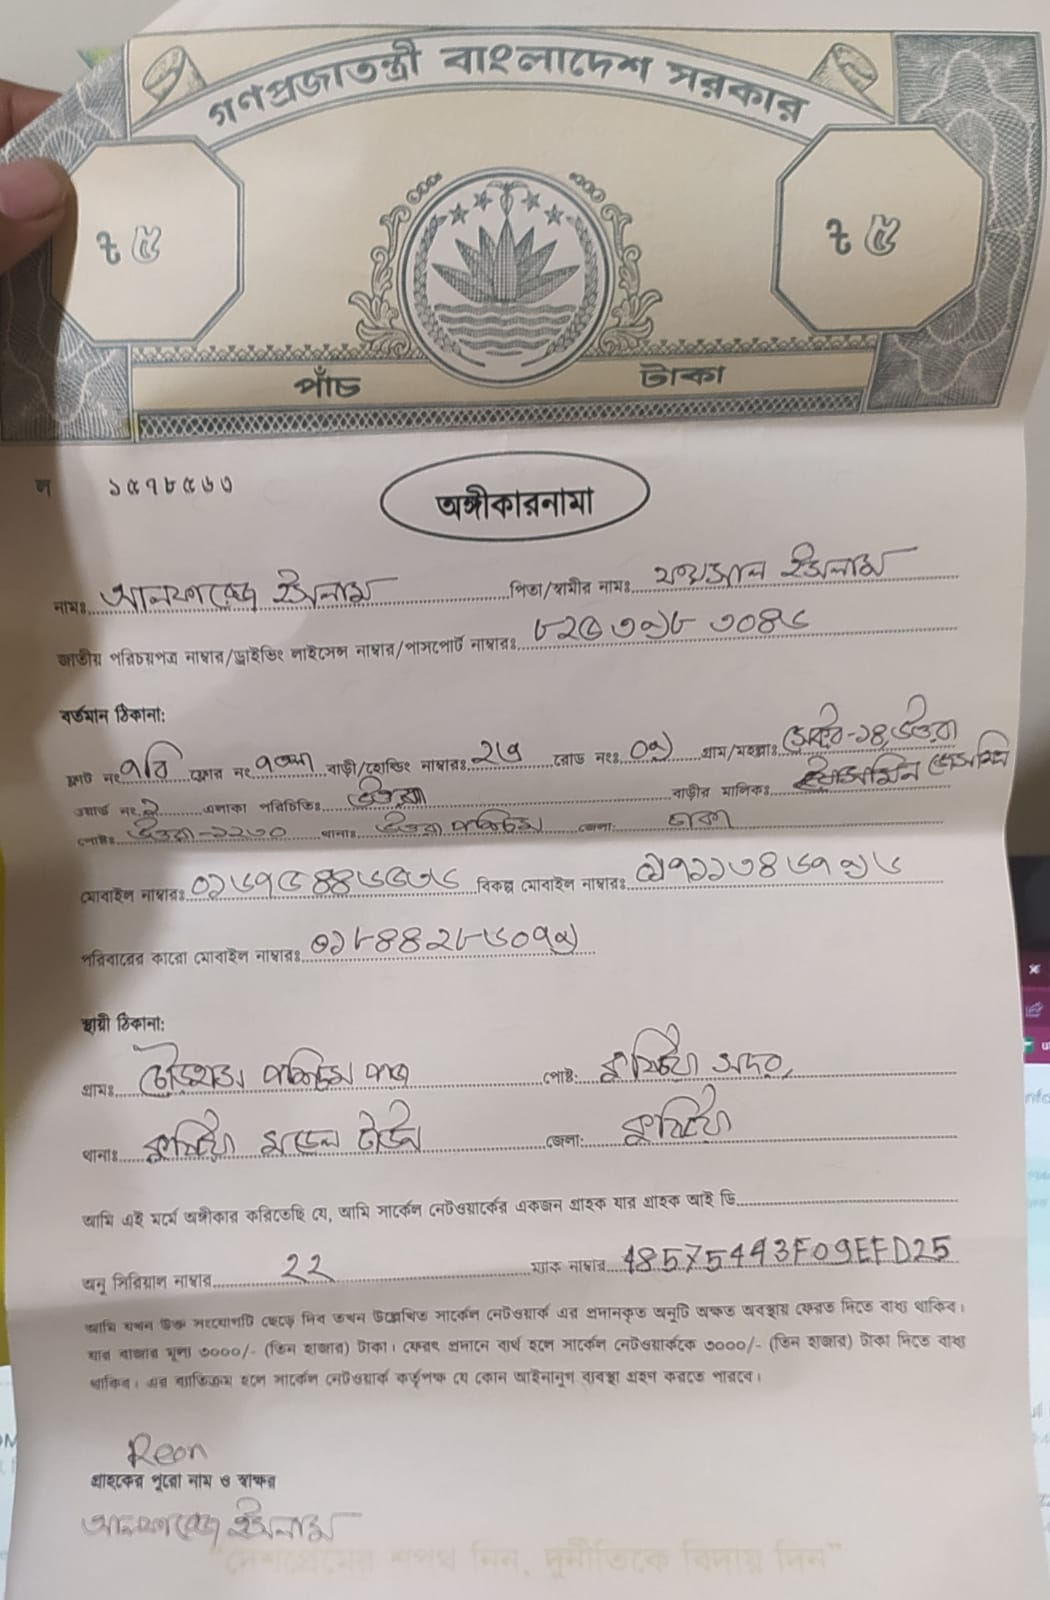 গণপ্রজাতন্ত্রী বাংলাদেশ সরকার
৳ ৫
৳ ৫
পাঁচ টাকা
ল ১৫৭৮৫৬৩
অঙ্গীকারনামা
নামঃ ইসলাম পিতা/স্বামীর নামঃ ফয়সাল ইসলাম
জাতীয় পরিচয়পত্র নাম্বার/ড্রাইভিং লাইসেন্স নাম্বার/পাসপোর্ট নাম্বারঃ
বর্তমান ঠিকানা:
ফ্লাট নং ৭বি ফ্লোর নং ৭তলা বাড়ী/হোল্ডিং নাম্বারঃ রোড নংঃ ০৯ গ্রাম/মহল্লাঃ সেক্টর-১৪, উত্তরা
ওয়ার্ড নং এলাকা পরিচিতিঃ উত্তরা বাড়ীর মালিকঃ
পোষ্টঃ উত্তরা-১২৩০ থানাঃ উত্তরা পশ্চিম জেলা: ঢাকা
মোবাইল নাম্বারঃ বিকল্প মোবাইল নাম্বারঃ
পরিবারের কারো মোবাইল নাম্বারঃ ০১৮৪৪২৮৬০৭৯
স্থায়ী ঠিকানা:
গ্রামঃ চৌড়হাস পশ্চিম পাড়া পোষ্ট: কুষ্টিয়া সদর,
থানাঃ কুষ্টিয়া মডেল টাউন জেলা: কুষ্টিয়া
আমি এই মর্মে অঙ্গীকার করিতেছি যে, আমি সার্কেল নেটওয়ার্কের একজন গ্রাহক যার গ্রাহক আই ডি
অনু সিরিয়াল নাম্বার ২২ ম্যাক নাম্বার 48575443F09EFD25
আমি যখন উক্ত সংযোগটি ছেড়ে দিব তখন উল্লেখিত সার্কেল নেটওয়ার্ক এর প্রদানকৃত অনুটি অক্ষত অবস্থায় ফেরত দিতে বাধ্য থাকিব।
যার বাজার মূল্য ৩০০০/- (তিন হাজার) টাকা। ফেরৎ প্রদানে ব্যর্থ হলে সার্কেল নেটওয়ার্ককে ৩০০০/- (তিন হাজার) টাকা দিতে বাধ্য
থাকিব। এর ব্যতিক্রম হলে সার্কেল নেটওয়ার্ক কর্তৃপক্ষ যে কোন আইনানুগ ব্যবস্থা গ্রহণ করতে পারবে।
Reon
গ্রাহকের পুরো নাম ও স্বাক্ষর
ইসলাম
"দেশপ্রেমের শপথ নিন, দুর্নীতিকে বিদায় দিন"